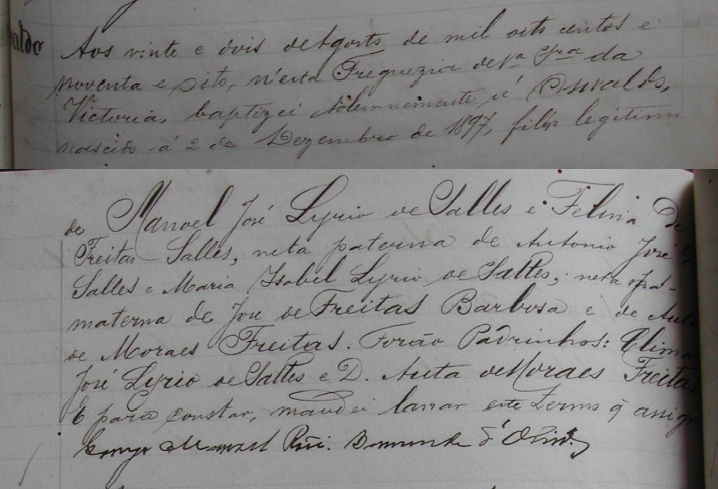 aldo
Aos vinte e dois de Agosto de mil oito centos e
noventa e oito, n'esta Freguezia de Nª Srª da
Victoria, baptizei solemnemente á Oswaldo,
nascido á 2 de Dezembro de 1897, filho legitimo
de Manoel José Lyrio de Salles e Felina de
Freitas Salles, neta paterna de Antonio José
Salles e Maria Isabel Lyrio de Salles; neta
materna de José de Freitas Barbosa e de
de Moraes Freitas. Forão Padrinhos: Clima
José Lyrio de Salles e D. Auta de Moraes Freitas
E para constar, mandei lavrar este termo q̃ assig
Manoel